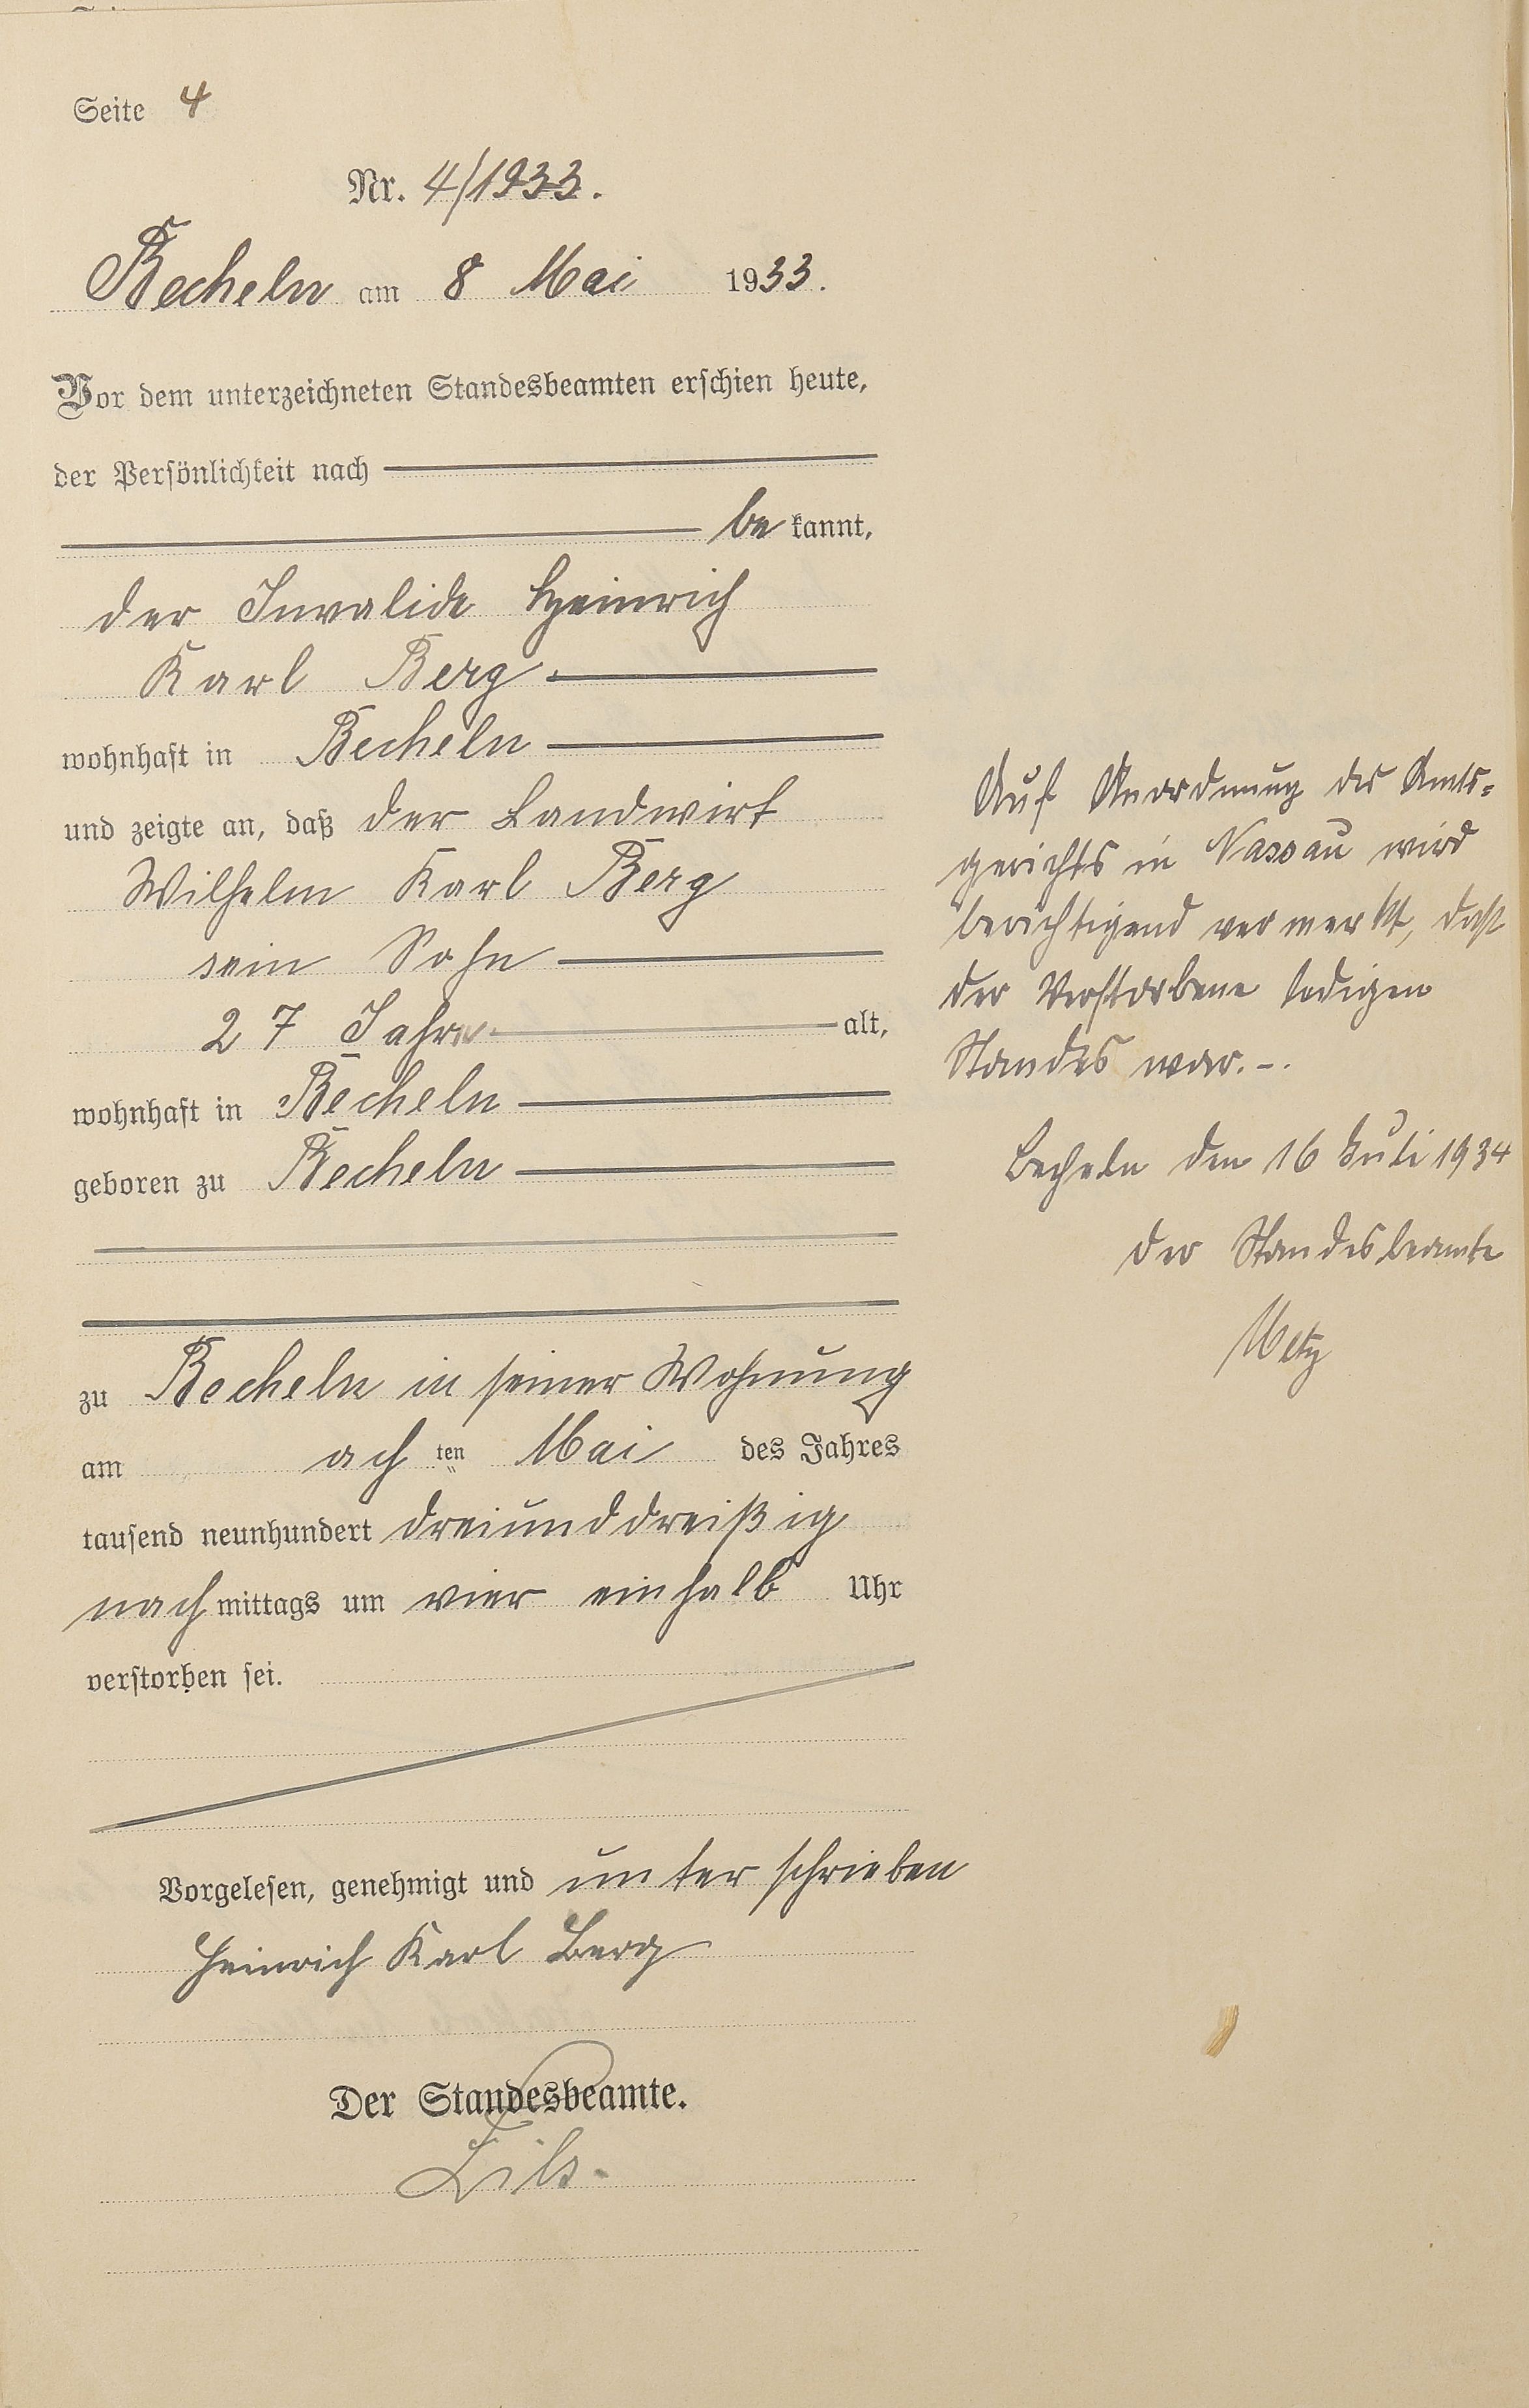 Seite 4
Nr. 4/1933.
Becheln am 8 Mai 1933.
Vor dem unterzeichneten Standesbeamten erschien heute,
der Persönlichkeit nach
be kannt,
der Invalide Heinrich
Karl Berg
wohnhaft in Becheln
und zeigte an, daß der Landwirt
Wilhelm Karl Berg
sein Sohn
27 Jahre alt,
wohnhaft in Becheln
geboren zu Becheln
zu Becheln in seiner Wohnung
am ach ten Mai des Jahres
tausend neunhundert dreiunddreißig
nach mittags um vier einhalb Uhr
verstorben sei.
Vorgelesen, genehmigt und unterschrieben
Heinrich Karl Berg
Der Standesbeamte.
Auf Anordnung des Amts=
gerichts in Nassau wird
berichtigend vermerkt, daß
der Verstorbene ledigen
Standes war.-.
Becheln den 16 Juli 1934
Der Standesbeamte
Metz